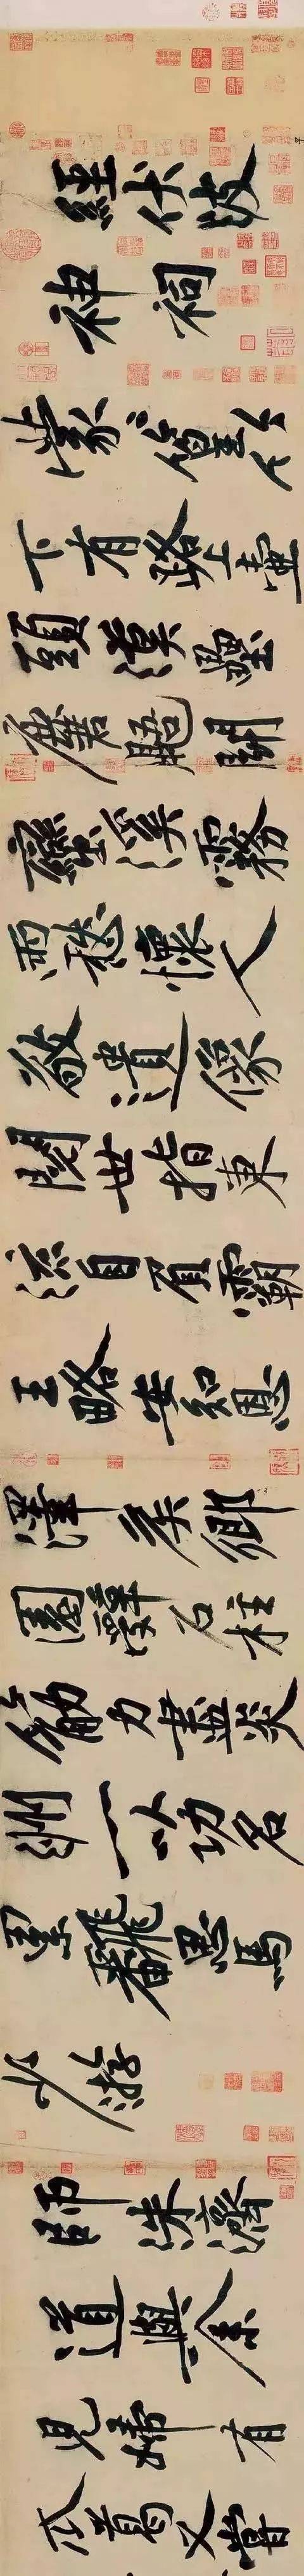 經伏波
神祠
蒙〻篁竹
下有路上壺
頭漢壘
麏鼯鬥
蠻溪霧
雨愁懷人
敬遺像
閱世指東
流自負霸
王略安知恩
澤侯鄉
園辭石柱
筋力盡炎
洲一以功名
累翻思馬
少游
師洙濟
道與余
兒婦有
瓜葛又嘗